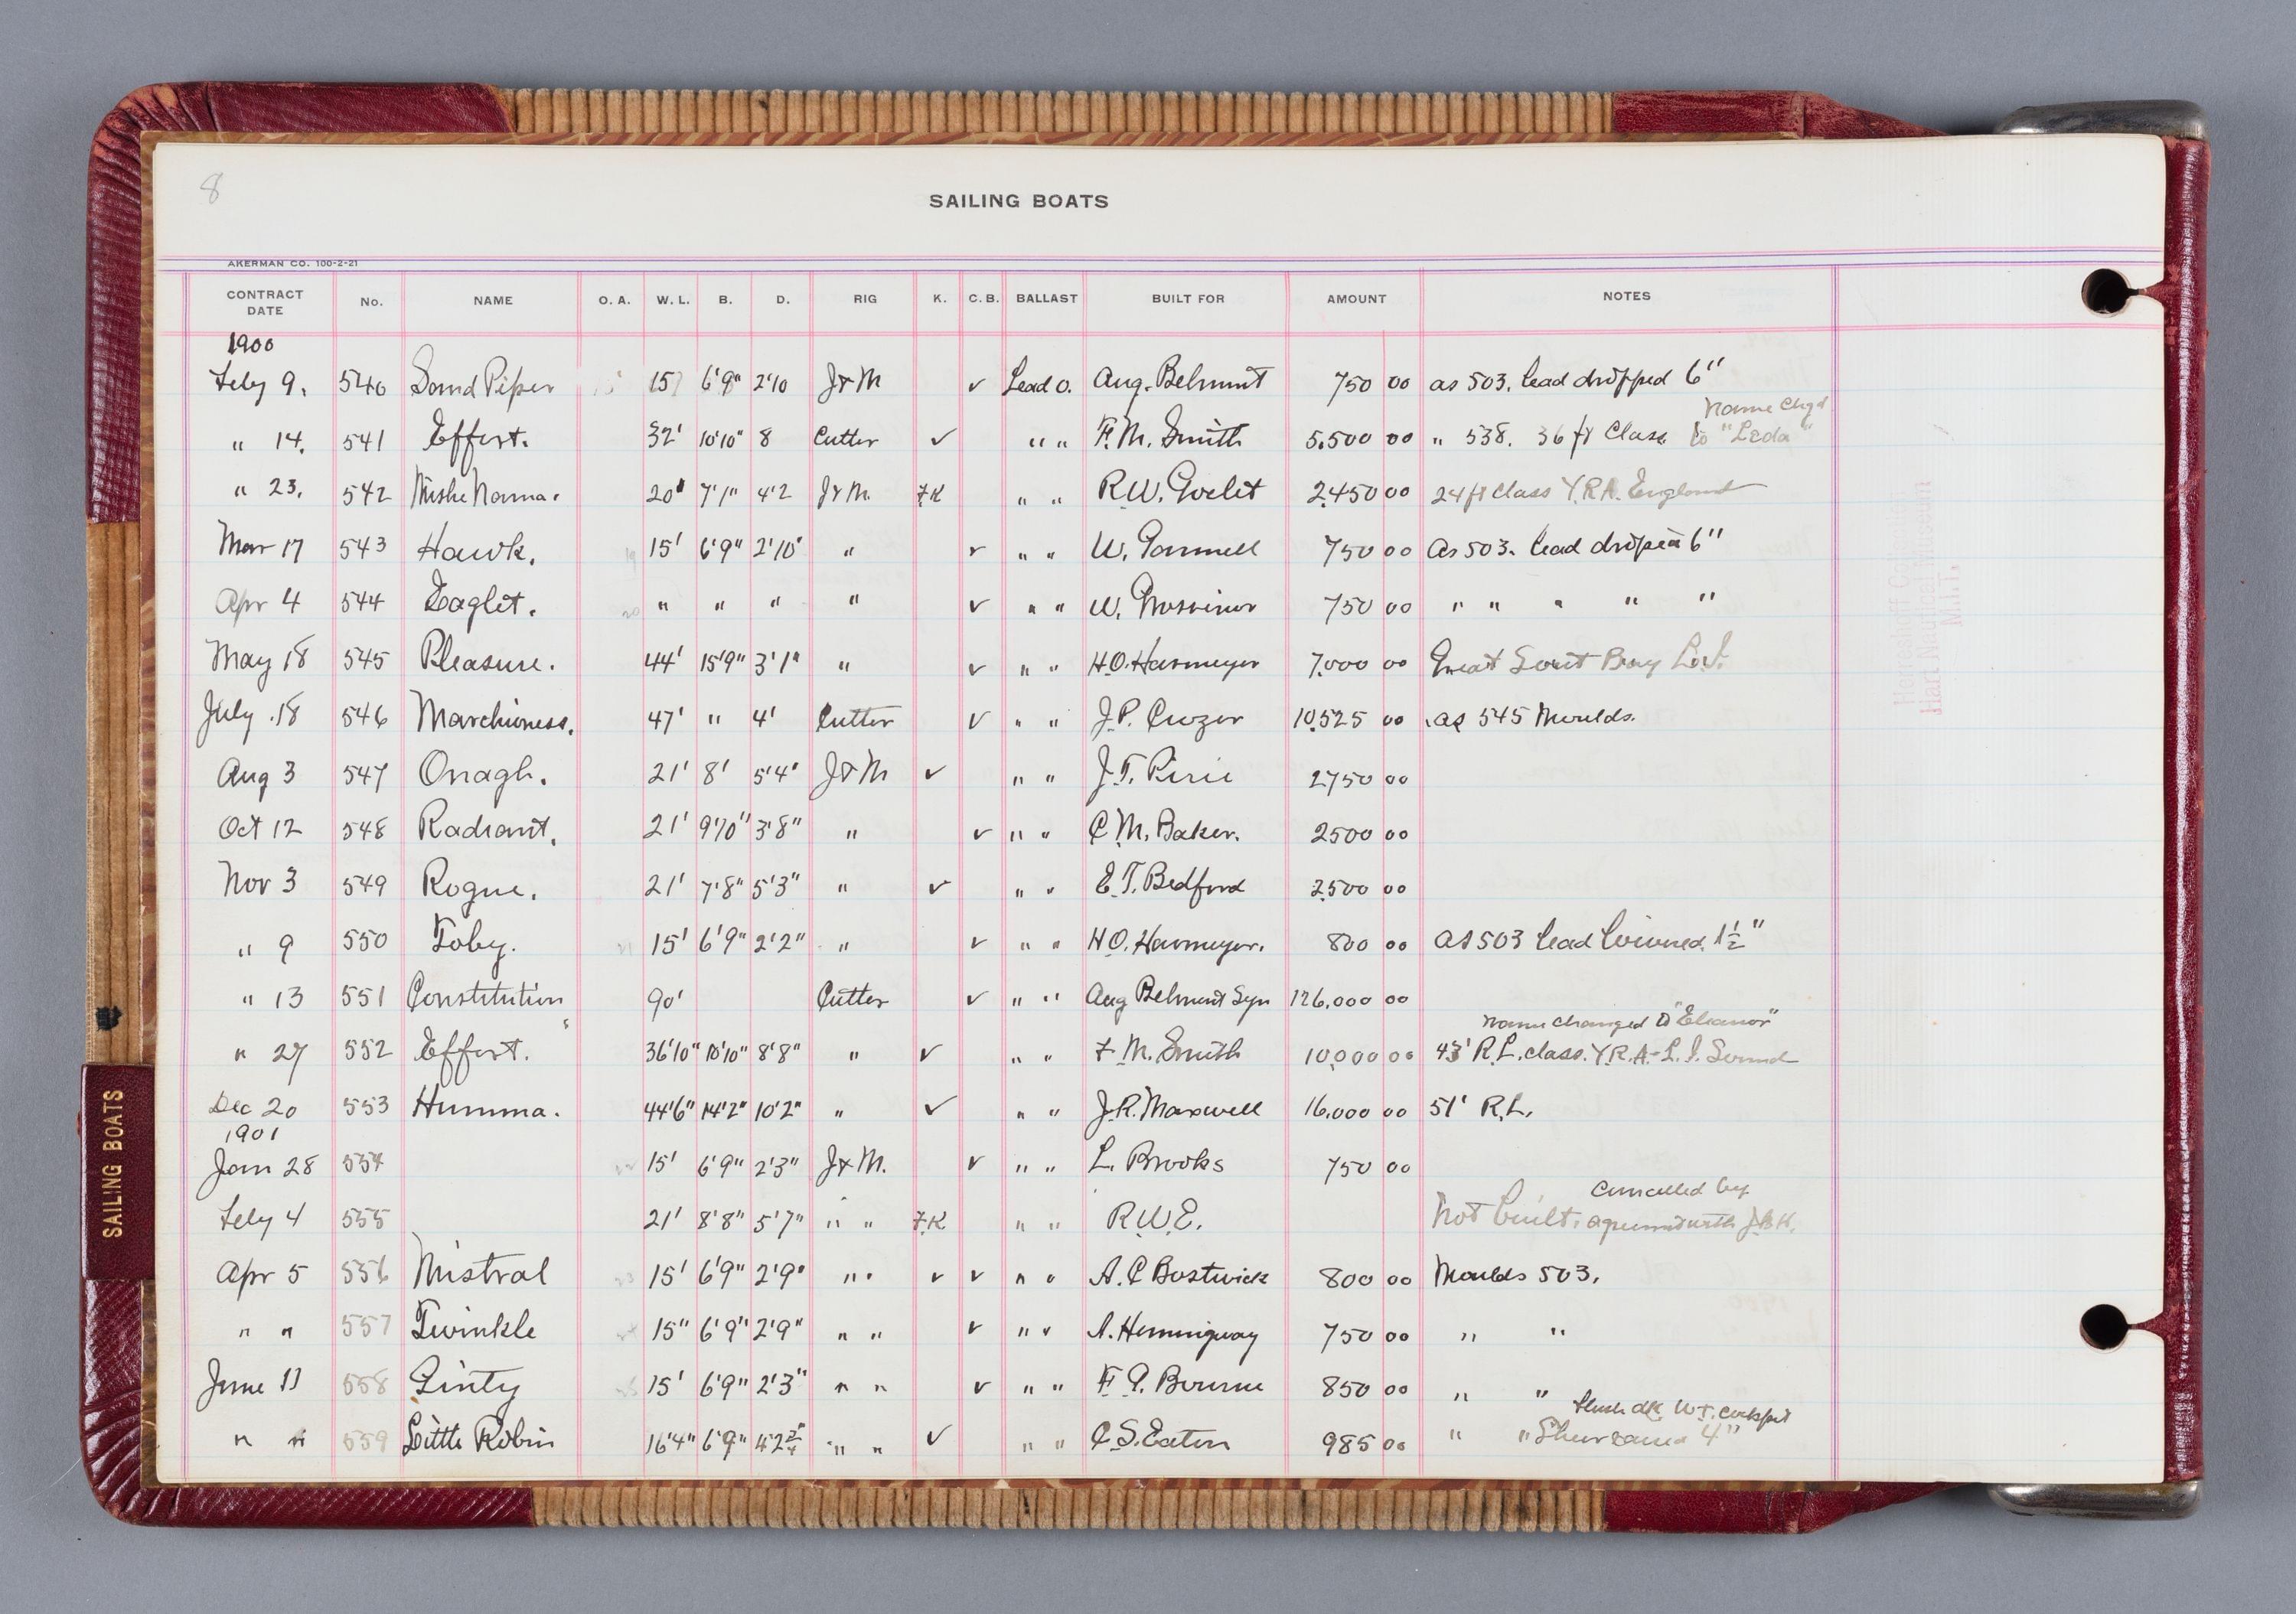 8
SAILING BOATS
AKERMAN CO. 100-2-21
CONTRACT DATE No. NAME O. A. W. L. B. D. RIG K. C. B. BALLAST BUILT FOR AMOUNT NOTES
1900
Feby 9. 540 Sand Piper 15' 6'9" 2'10 J & M ✓ Lead O. Aug. Belmont 750 00 as 503. lead dropped 6"
Name Chgd
" 14. 541 Effort. 32' 10'10" 8 Cutter ✓ " " F. M. Smith 5,500 00 " 538. 36 ft Class to "Leda"
" 23. 542 Mishe Nama. 20' 7'1" 4'2 J & M. F K " " R. W. Goelet 2,450 00 24 ft Class Y. R. A. England
Mar 17 543 Hawk. 15' 6'9" 2'10" " ✓ " " W. Gammell 750 00 As 503. lead droped 6"
Apr 4 544 Eaglet. " " " " ✓ " " W. Grosvenor 750 00 " " " " "
May 18 545 Pleasure. 44' 15'9" 3'1" " ✓ " " H. O. Havmeyer 7,000 00 Great Sout Bay L. I.
July 18 546 Marchioness. 47' " 4' Cutter ✓ " " J. P. Crozer 10,525 00 as 545 Moulds.
Aug 3 547 Onagh. 21' 8' 5'4" J & M ✓ " " J. T. Pirie 2750 00
Oct 12 548 Radiant. 21' 9'10" 3'8" " ✓ " " C. M. Baker. 2500 00
Nov 3 549 Rogue. 21' 7'8" 5'3" " ✓ " " E. T. Bedford 2,500 00
" 9 550 Toby. 15' 6'9" 2'2" " ✓ " " H. O. Havmeyer. 800 00 as 503 lead lowered 1 1/2"
" 13 551 Constitution 90' Cutter ✓ " " Aug Belmont Syn 126,000 00
name changed to "Eleanor"
" 27 552 Effort. 36'10" 10'10" 8'8" " ✓ " " F. M. Smith 10,000 00 43' R. L. class. Y. R. A. - L. I. Sound
Dec 20 553 Humma. 44'6" 14'2" 10'2" " ✓ " " J. R. Maxwell 16,000 00 51' R. L.
1901
Jan 28 554 15' 6'9" 2'3" J & M. ✓ " " L. Brooks 750 00
Cancelled by
Feby 4 555 21' 8'8" 5'7" " " F K " " R. W. E. Not built. agreement with
Apr 5 556 Mistral 15' 6'9" 2'9" " " ✓ ✓ " " A. C Bostwick 800 00 Moulds 503.
" " 557 Twinkle 15" 6'9" 2'9" " " ✓ " " A. Hemmigway 750 00 " "
June 11 558 Ginty 15' 6'9" 2'3" " " ✓ " " F. G. Bourne 850 00 " "
flush dk. W. T. cockpit
" " 559 Little Robin 16'4" 6'9" 4'2 3/4 " " ✓ " " C. S. Eaton 985 00 " " Sheer raised 4"
SAILING BOATS
Hart Nautical Museum
M.I.T.